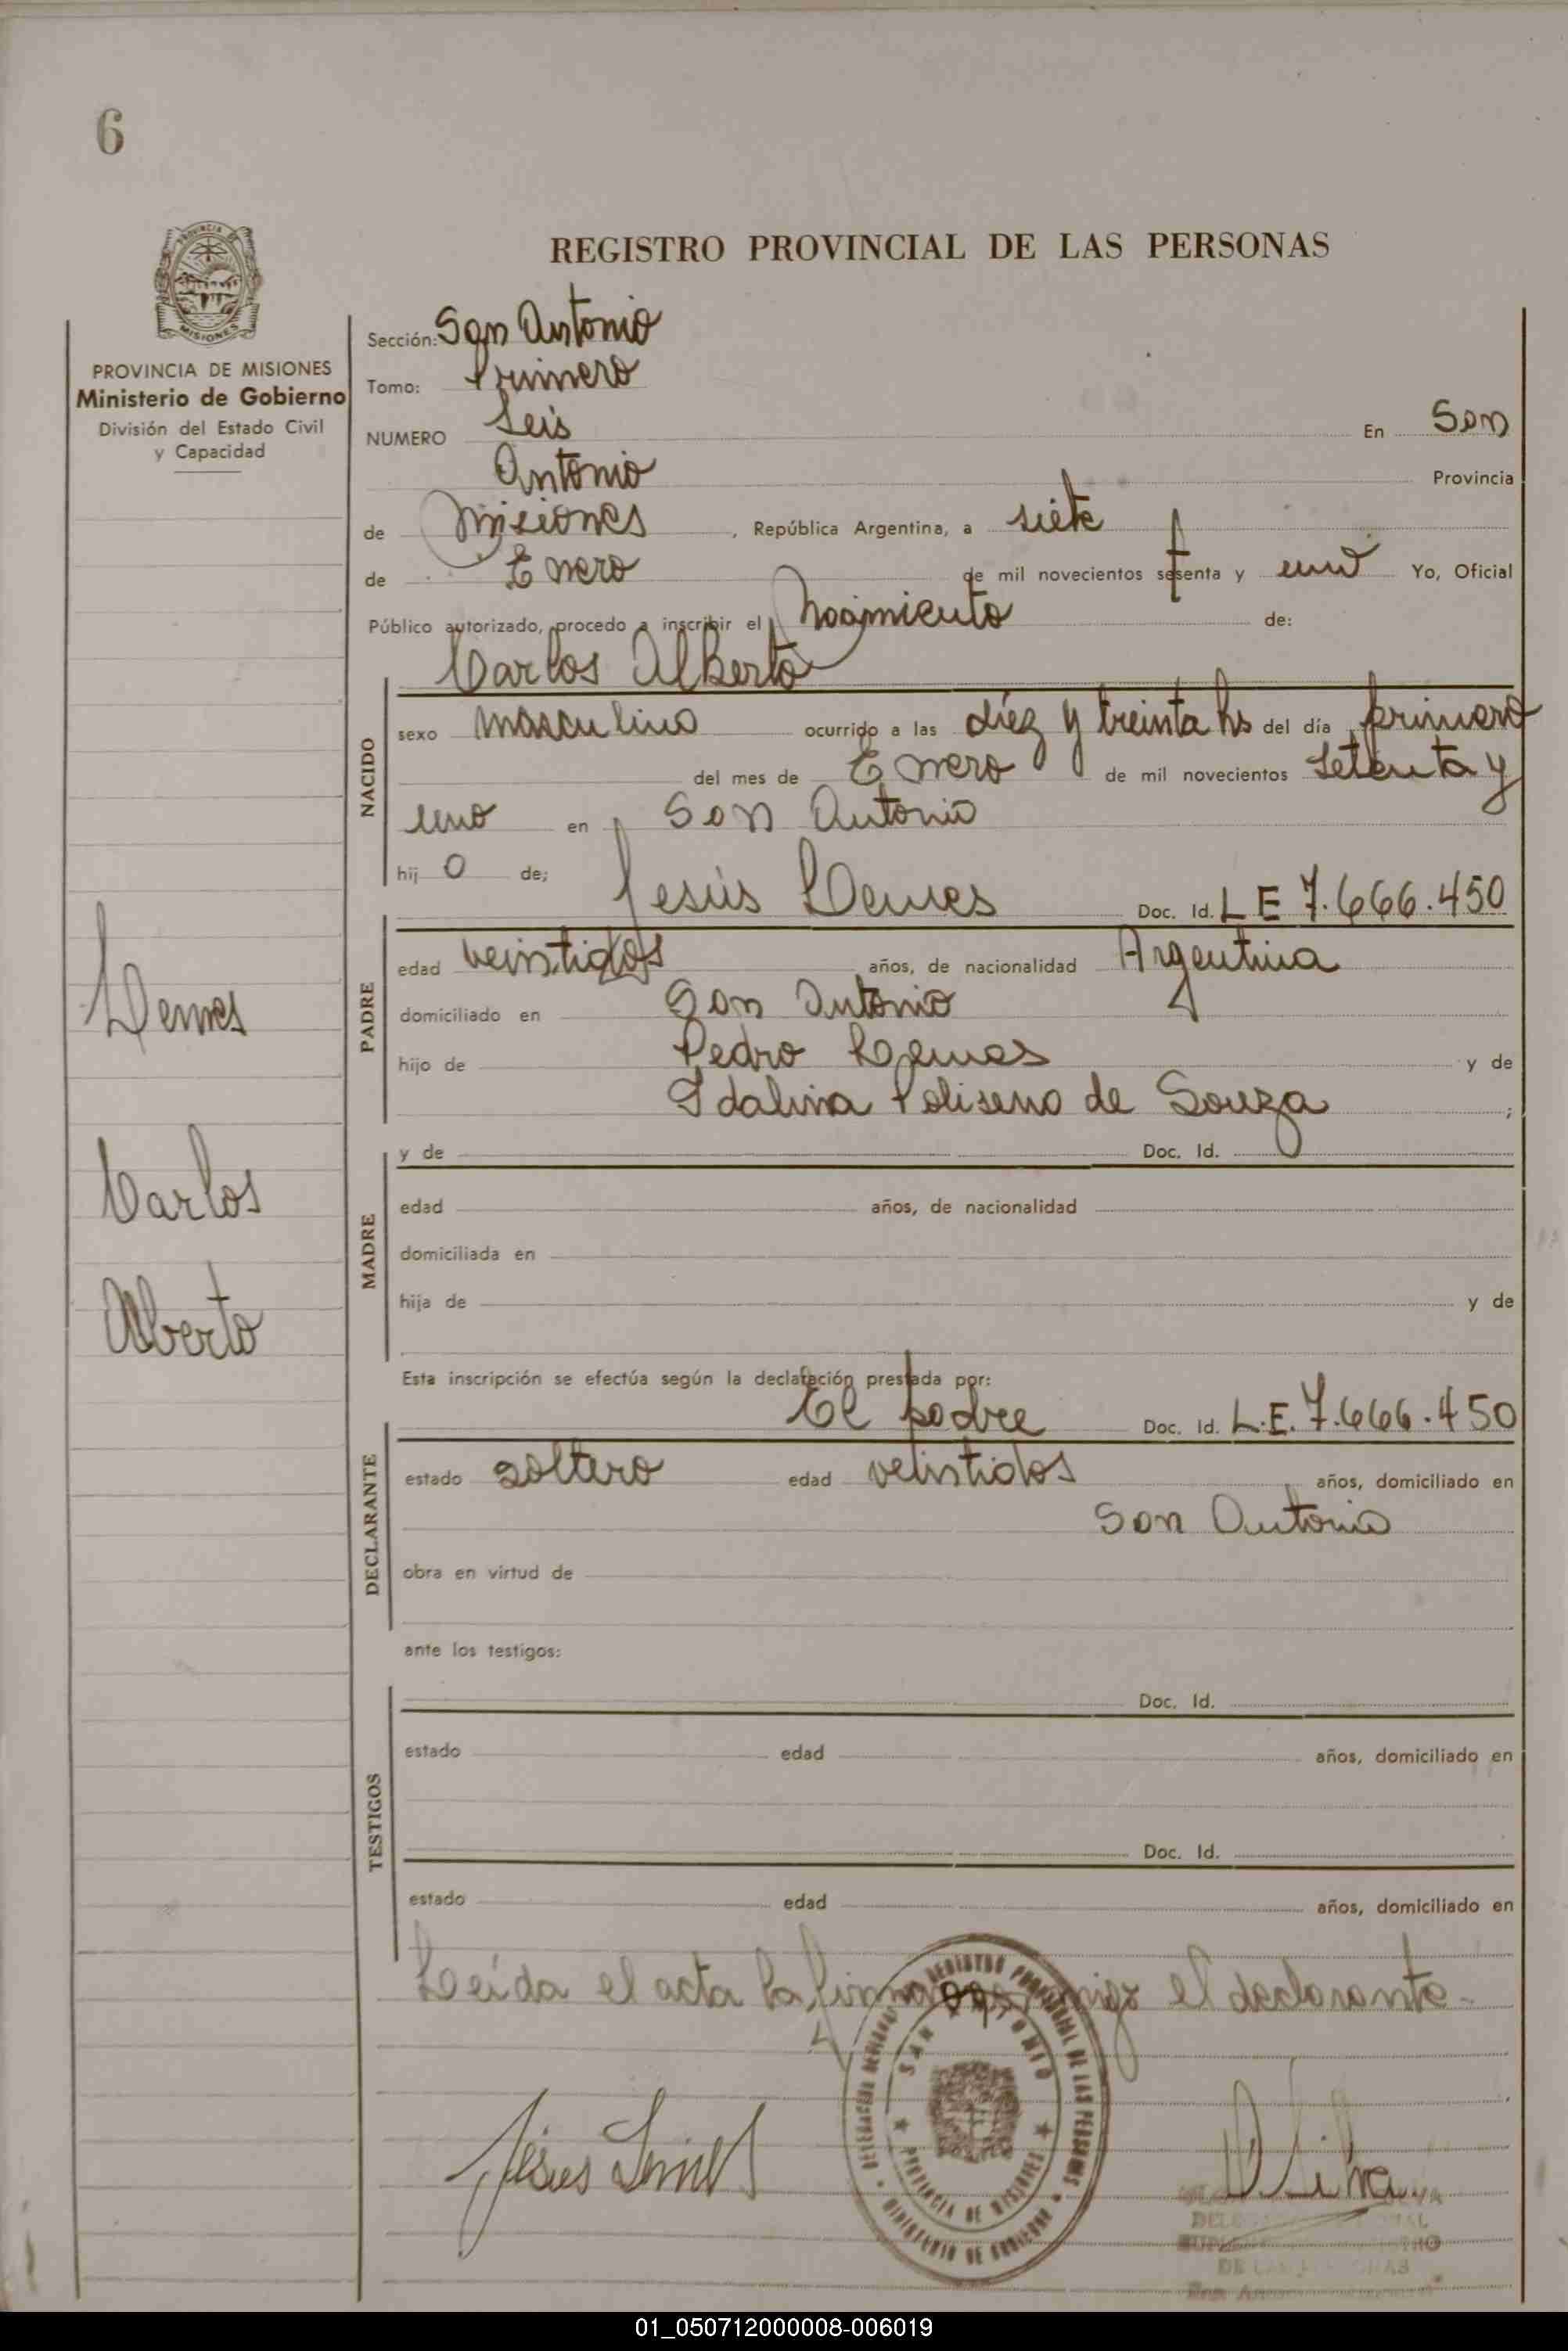 6
REGISTRO PROVINCIAL DE LAS PERSONAS
PROVINCIA DE MISIONES
Ministerio de Gobierno
División del Estado Civil
y Capacidad
Sección: San Antonio
Tomo: Primero
NUMERO Seis En San
Antonio Provincia
de Misiones, República Argentina, a siete
de Enero de mil novecientos sesenta y uno Yo, Oficial
Público autorizado, procedo a inscribir el Nacimiento de:
Carlos Alberto
NACIDO
sexo masculino ocurrido a las diez y treinta hs del día primero
del mes de Enero de mil novecientos setenta y
uno en San Antonio
hij o de;
Jesús Lemes Doc. Id. L E 7.666.450
PADRE
edad veintidos años, de nacionalidad Argentina
domiciliado en San Antonio
hijo de Pedro Lemes y de
Idalina Poliseno de Souza ;
Lemes
Carlos
Alberto
MADRE
y de Doc. Id.
edad años, de nacionalidad
domiciliada en
hija de y de
Esta inscripción se efectúa según la declaración prestada por:
El padre Doc. Id. L.E. 7.666.450
DECLARANTE
estado soltero edad veintidos años, domiciliado en
San Antonio
obra en virtud de
ante los testigos:
TESTIGOS
Doc. Id.
estado edad años, domiciliado en
Doc. Id.
estado edad años, domiciliado en
Leída el acta la firma el declarante-
SAN ANTONIO
PROVINCIA DE MISIONES
MINISTERIO DE GOBIERNO
REGISTRO PROVINCIAL DE LAS PERSONAS
Jesus Lemes
Silva
01_050712000008-006019